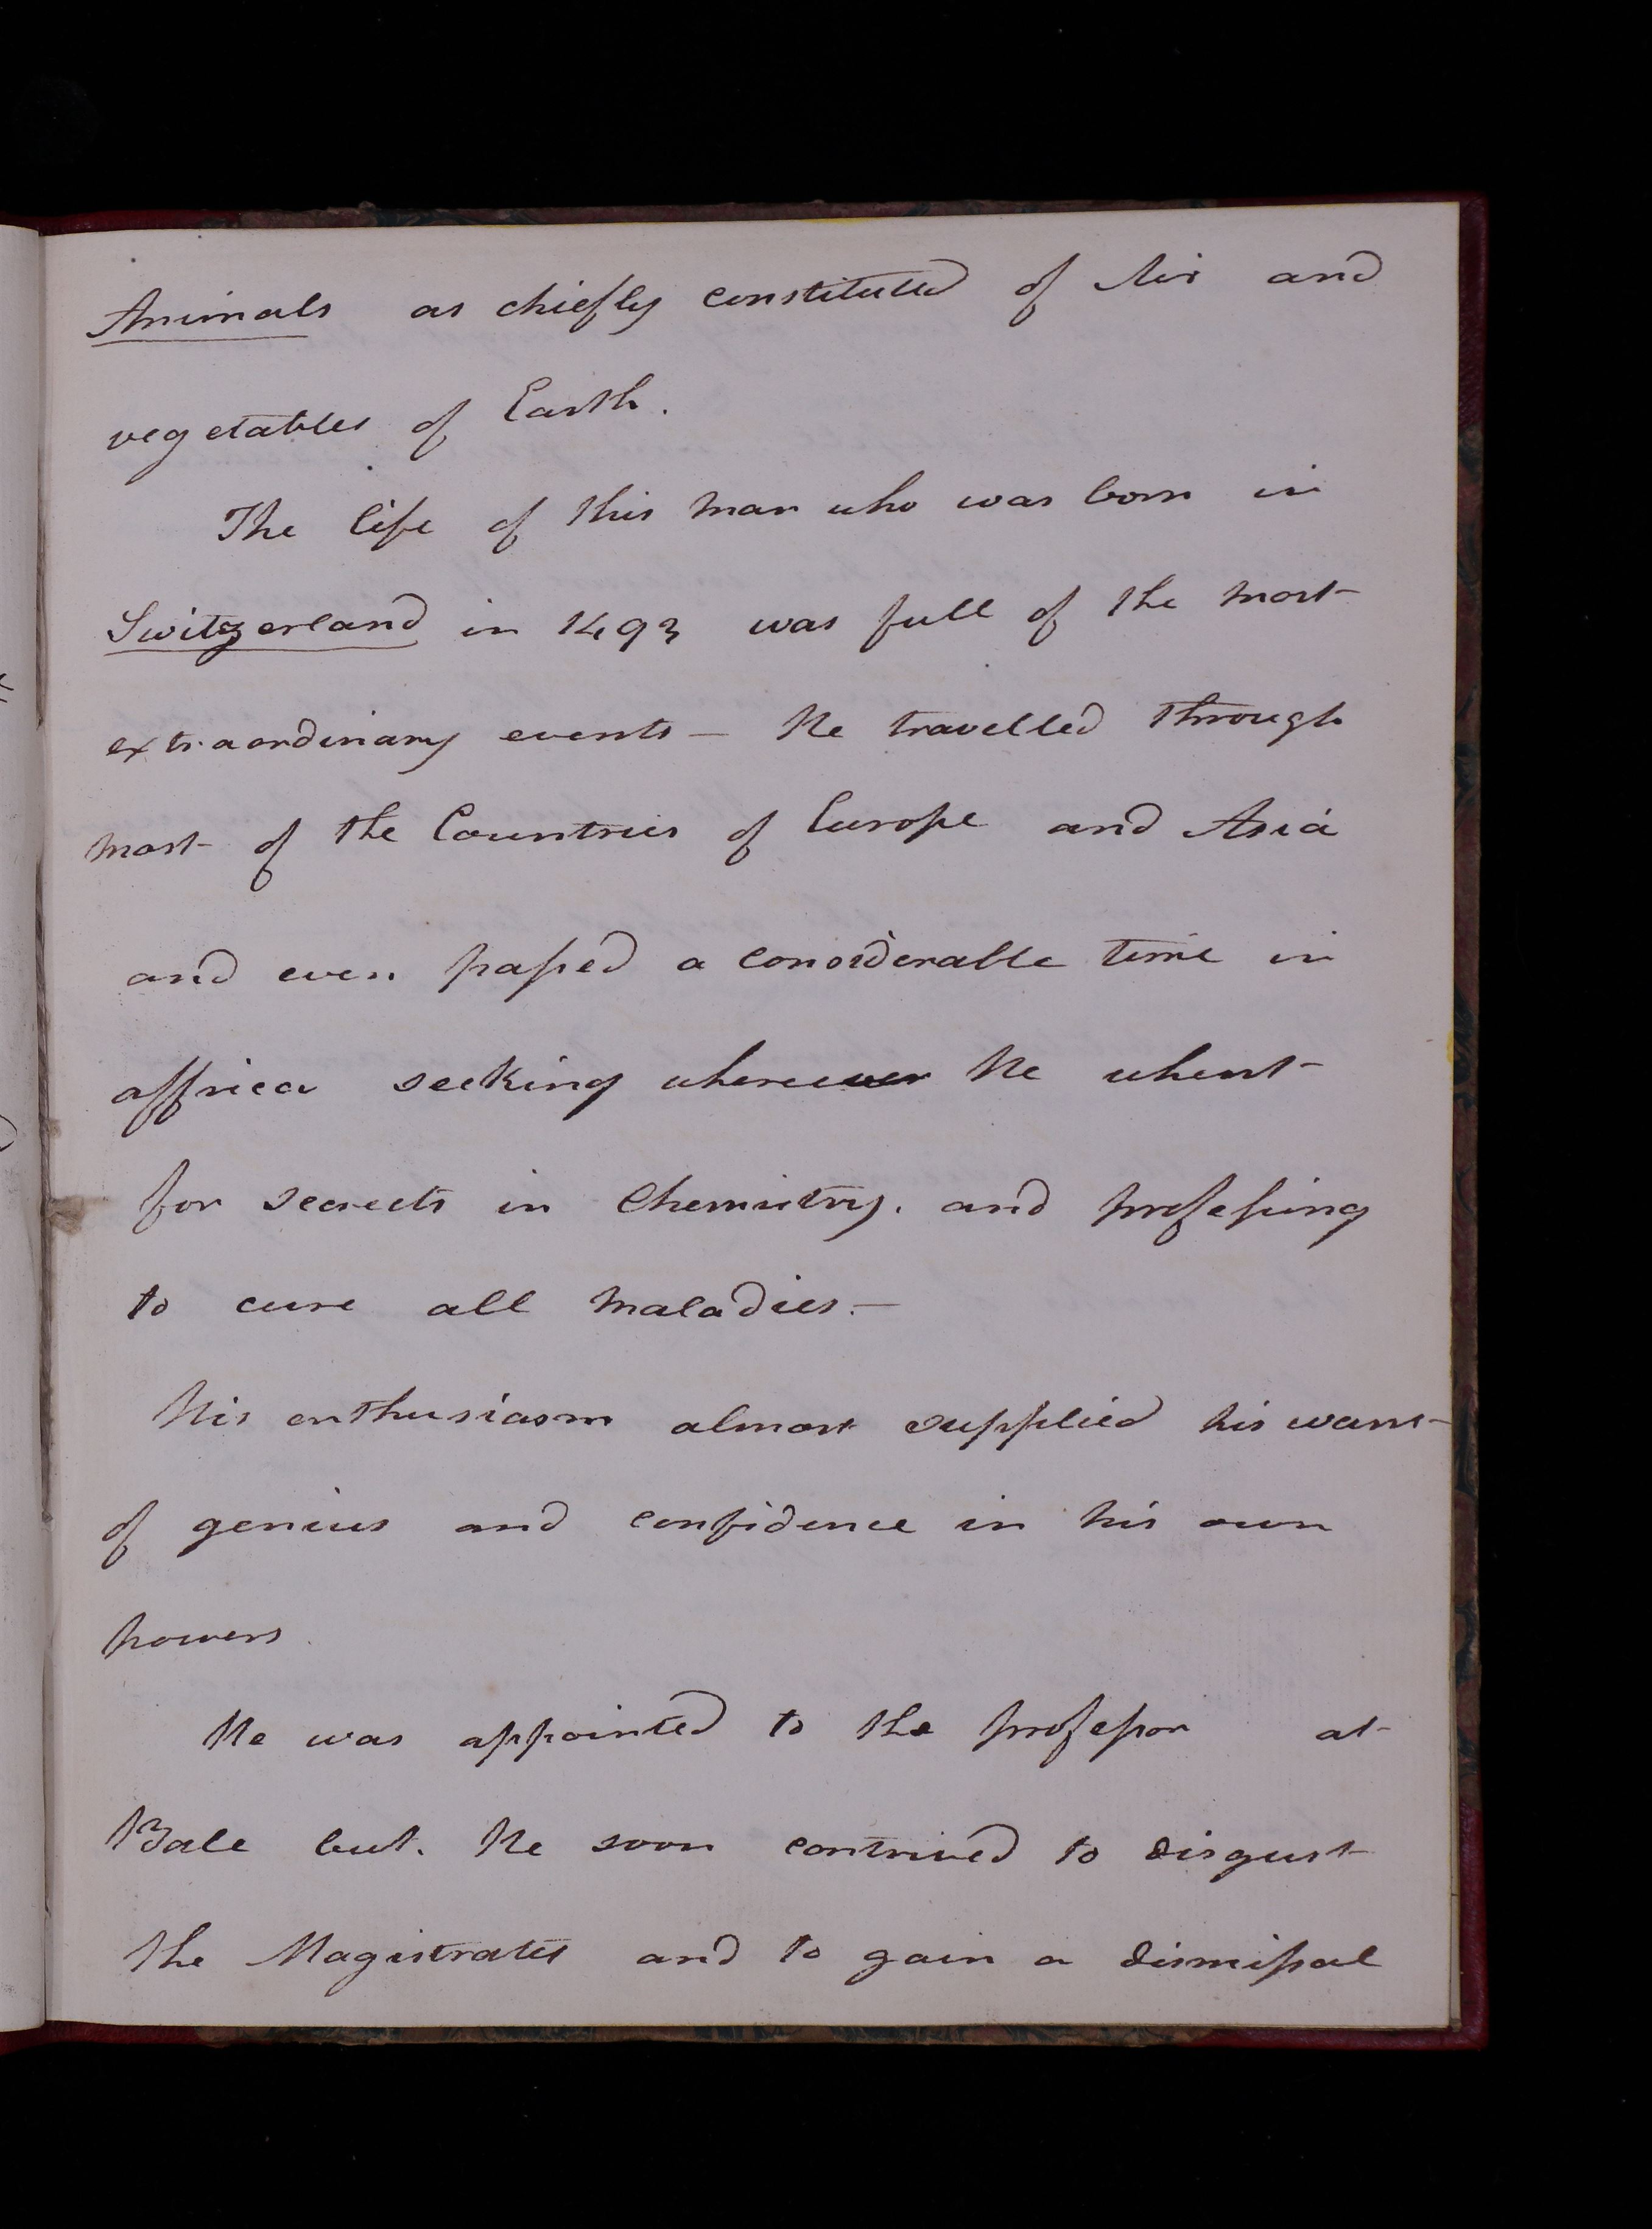 Animals as chiefly constituted of Air and
vegetables of Earth.
The life of this man who was born in
Switzerland in 1493 was full of the most
extraordinary events — He travelled through
most of the Countries of Europe and Asia
and even passed a considerable time in
affrica seeking wherever He whent
for secrets in Chemistry. and professing
to cure all maladies. —
His enthusiasm almost supplied his want
of genius and confidence in his own
powers.
He was appointed to the professor at
Bale but. He soon contrived to disgust
the Magistrates and to gain a dismissal